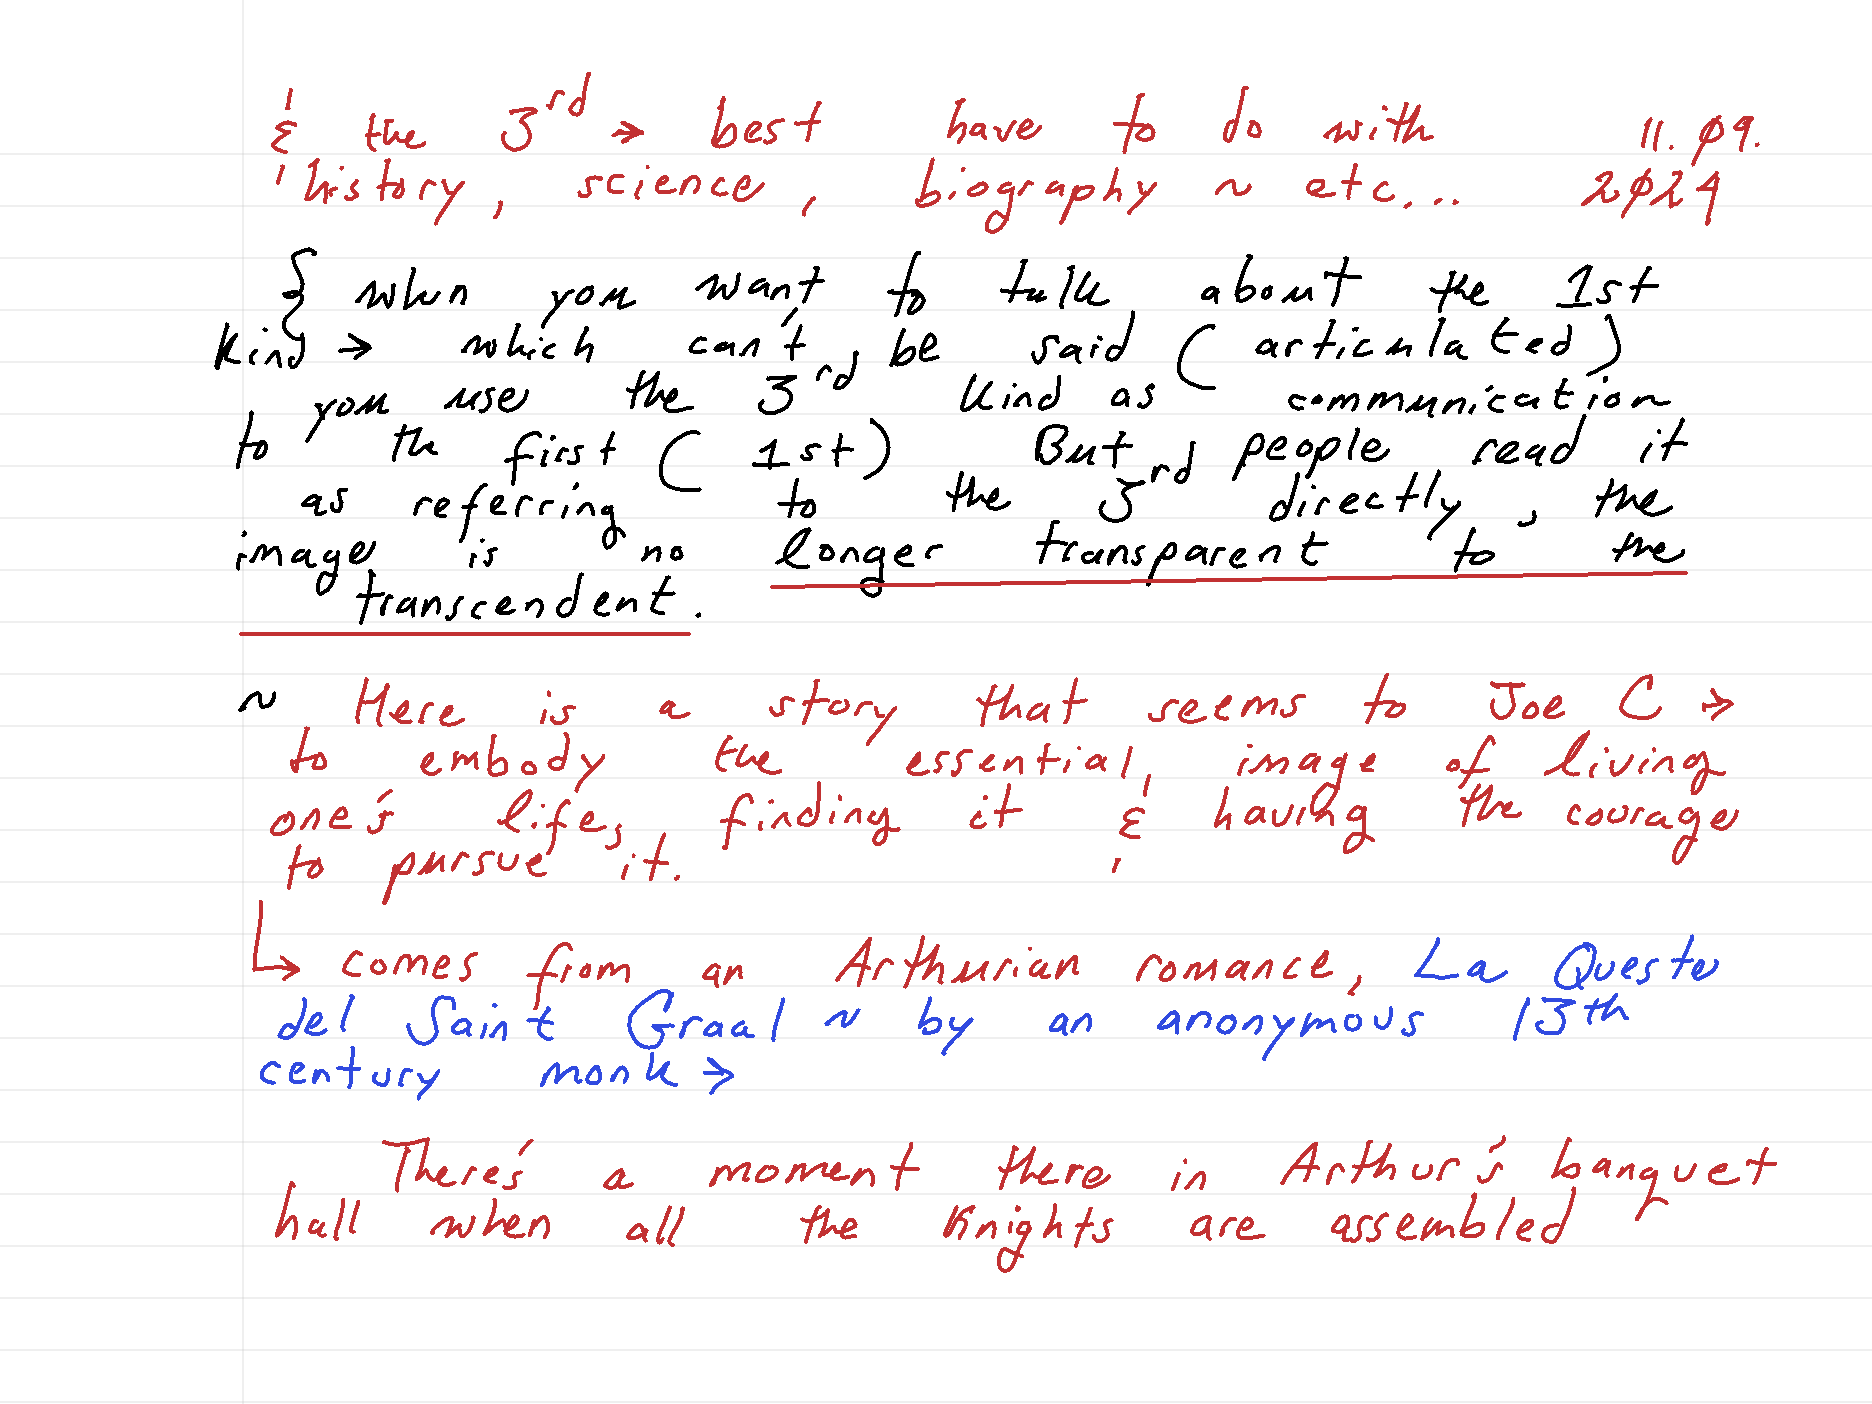 & the 3rd → best have to do with 11. 09.
history, science, biography ~ etc... 2024
{ when you want to talk about the 1st
kind → which can't be said (articulated)
you use the 3rd kind as communication
to th first (1st) But, people read it
as referring to the 3rd directly, the
image is no longer transparent to the
transcendent.
~ Here is a story that seems to Joe C →
to embody the essential, image of living
one's life, finding it & having the courage
to pursue it.
↳ comes from an Arthurian romance, La Queste
del Saint Graal ~ by an anonymous 13th
century monk →
There's a moment there in Arthur's banquet
hall when all the Knights are assembled